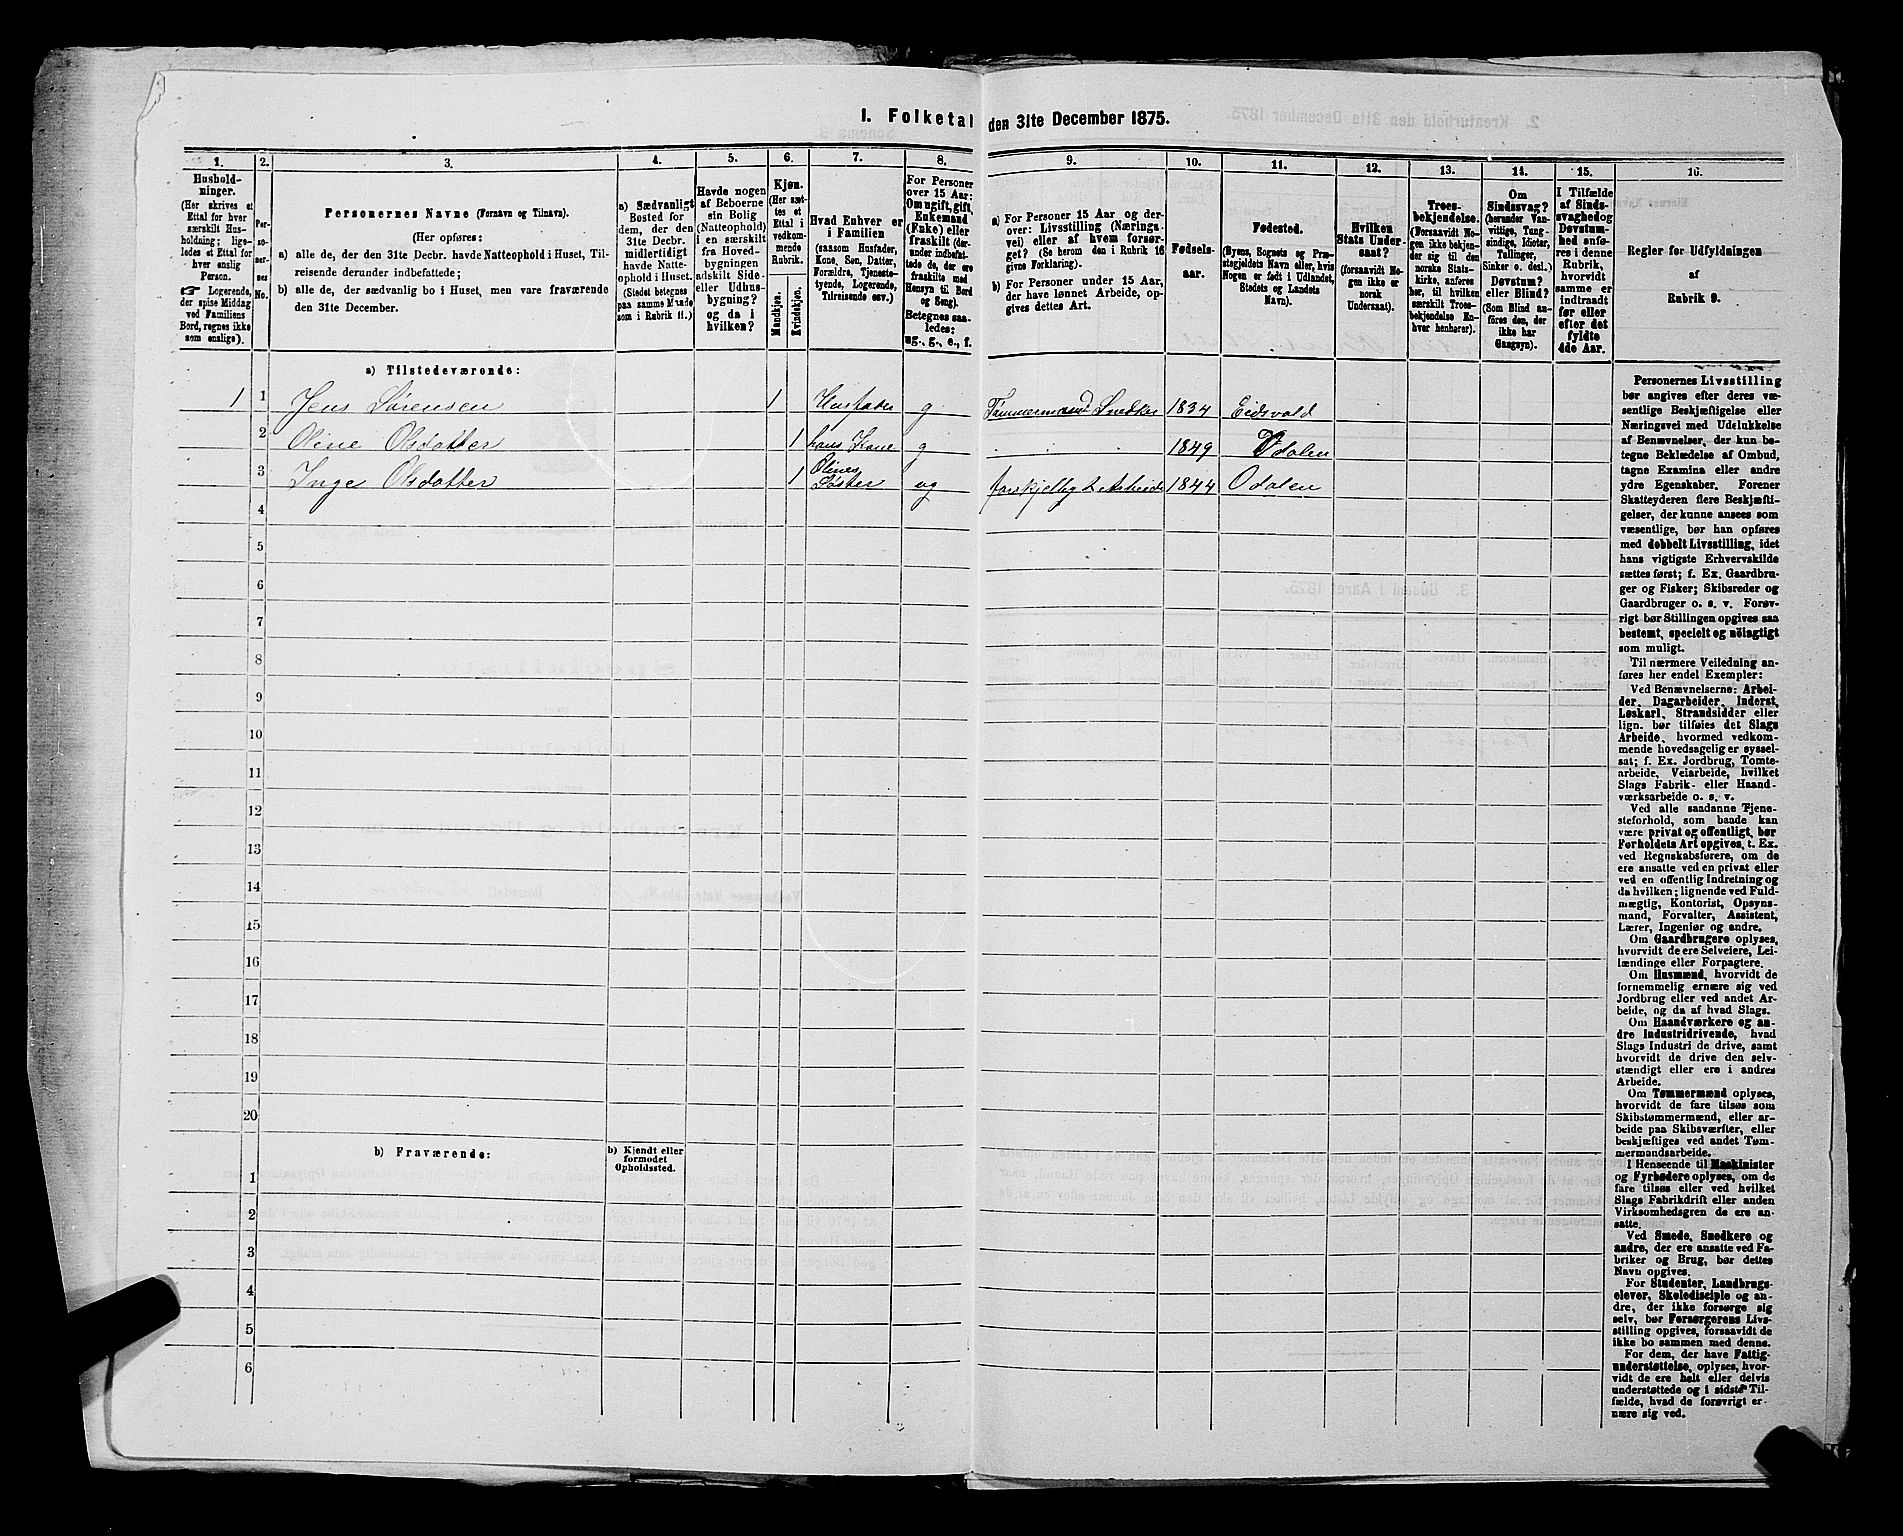 I. Folketal den 31te December 1875.
1.
Hushold-
ninger.
(Her skrives et
Ettal for hver
særskilt Hus-
holdning; lige-
ledes et Ettal for
hver enslig
Person.
Logerende,
der spise Middag
ved Familiens
Bord, regnes ikke
som enslige).
2.
Per-
so-
ner-
nes
No.
3.
Personernes Navne (Fornavn og Tilnavn).
(Her opføres:
a) alle de, der den 31te Decbr. havde Natteophold i Huset, Til-
reisende derunder indbefattede;
b) alle de, der sædvanlig bo i Huset, men vare fraværende
den 31te December.
4.
a) Sædvanligt
Bosted for
dem, der den
31te Decbr.
midlertidigt
havde Natte-
ophold i Huset.
(Stedet betegnes
paa samme Maade
som i Rubrik 11.)
5.
Havde nogen
af Beboerne
sin Bolig
(Natteophold)
i en særskilt
fra Hoved-
bygningen
adskilt Side-
eller Udhus-
bygning?
og da i
hvilken?
6.
Kjøn.
(Her sæt-
tes et
Ettal i
vedkom-
mende
Rubrik.
Mandkjøn.
Kvindekjøn.
7.
Hvad Enhver er
i Familien
(saasom Husfader,
Kone, Søn, Datter,
Forældre, Tjeneste-
tyende, Logerende,
Tilreisende osv.)
8.
For Personer
over 15 Aar:
Om ugift, gift,
Enkemand
(Enke) eller
fraskilt (der-
under indbefat-
tede de, der ere
fraskilte med
Hensyn til Bord
og Seng).
Betegnes saa-
ledes:
ug., g., e., f.
9.
a) For Personer 15 Aar og der-
over: Livsstilling (Nærings-
vei) eller af hvem forsør-
get? (Se herom den i Rubrik 16
givne Forklaring).
b) For Personer under 15 Aar,
der have lønnet Arbeide, op-
gives dettes Art.
10.
Fødsels-
aar.
11.
Fødested.
(Byens, Sognets og Præ-
stegjeldets Navn eller, hvis
Nogen er født i Udlandet,
Stedets og Landets
Navn).
12.
Hvilken
Stats Under-
saat?
(forsaavidt No-
gen ikke er
norsk
Undersaat).
13.
Troes-
bekjendelse.
(Forsaavidt No-
gen ikke bekjen-
der sig til den
norske Stats-
kirke, anføres
her, til hvilken
særskilt Troes-
bekjendelse En-
hver henhører).
14.
Om
Sindssvag?
(herunder Van-
vittige, Tung-
sindige, Idioter,
Tullinger,
Sinker o. desl.)
Døvstum?
eller Blind?
(Som Blind an-
føres den, der
ikke har
Gangsyn).
15.
I Tilfælde
af Sinds-
svaghed og
Døvstum-
hed anfø-
res i denne
Rubrik,
hvorvidt
samme er
indtraadt
før eller
efter det
fyldte
4de Aar.
16.
Regler før Udfyldningen
af
Rubrik 9.
a) Tilstedeværende:
1 1 Jens Sørensen 1 Husfader g Tømmermand Snedker 1834 Eidsvold
2 Oline Olsdatter 1 hans Kone g 1849 Odalen
3 Inge Olsdatter 1 Olines Søster ug forskjelligt Arbeide 1844 Odalen
4
5
6
7
8
9
10
11
12
13
14
15
16
17
18
19
20
b) Fraværende:
b) Kjendt eller
formodet
Opholdssted.
1
2
3
4
5
6
Personernes Livsstilling
bør angives efter deres væ-
sentlige Beskjæftigelse eller
Næringsvei med Udelukkelse
af Benævnelser, der kun be-
tegne Beklædelse af Ombud,
tagne Examina eller andre
ydre Egenskaber. Forener
Skatteyderen flere Beskjæfti-
gelser, der kunne ansees som
væsentlige, bør han opføres
med dobbelt Livsstilling, idet
hans vigtigste Erhvervskilde
sættes først; f. Ex. Gaardbru-
ger og Fisker; Skibsreder og
Gaardbruger o. s. v. Forøv-
rigt bør Stillingen opgives saa
bestemt, specielt og nøiagtigt
som muligt.
Til nærmere Veiledning an-
føres her endel Exempler:
Ved Benævnelserne: Arbei-
der, Dagarbeider, Inderst,
Løskarl, Strandsidder eller
lign. bør tilføies det Slags
Arbeide, hvormed vedkom-
mende hovedsagelig er syssel-
sat; f. Ex. Jordbrug, Tomte-
arbeide, Veiarbeide, hvilket
Slags Fabrik- eller Haand-
værksarbeide o. s. v.
Ved alle saadanne Tjene-
steforhold, som baade kan
være privat og offentligt, bør
Forholdets Art opgives, t. Ex.
ved Regnskabsførere, om de
ere ansatte ved en privat eller
ved en offentlig Indretning og
da hvilken; lignende ved Fuld-
mægtig, Kontorist, Opsyns-
mand, Forvalter, Assistent,
Lærer, Ingeniør og andre.
Om Gaardbrugere oplyses,
hvorvidt de ere Selveiere, Lei-
lændinge eller Forpagtere.
Om Husmænd, hvorvidt de
fornemmelig ernære sig ved
Jordbrug eller ved andet Ar-
beide, og da af hvad Slags.
Om Haandværkere og an-
dre Industridrivende, hvad
Slags Industri de drive, samt
hvorvidt de drive den selv-
stændigt eller ere i andres
Arbeide.
Om Tømmermænd oplyses,
hvorvidt de fare tilsøs som
Skibstømmermænd, eller ar-
beide paa Skibsværfter, eller
beskjæftiges ved andet Tøm-
mermandsarbeide.
I Henseende til Maskinister
og Fyrbødere oplyses, om de
fare tilsøs eller ved hvilket
Slags Fabrikdrift eller anden
Virksomhedsgren de ere an-
satte.
Ved Smede, Snedkere og
andre, der ere ansatte ved Fa-
briker og Brug, bør dettes
Navn opgives.
For Studenter, Landbrugs-
elever, Skoledisciple og an-
dre, der ikke forsørge sig
selv, bør Forsørgerens Livs-
stilling opgives, forsaavidt de
ikke bo sammen med denne.
For dem, der have Fattig-
understøttelse, oplyses, hvor-
vidt de ere helt eller delvis
understøttede og i sidste Til-
fælde, hvad de forøvrigt er-
nære sig ved.